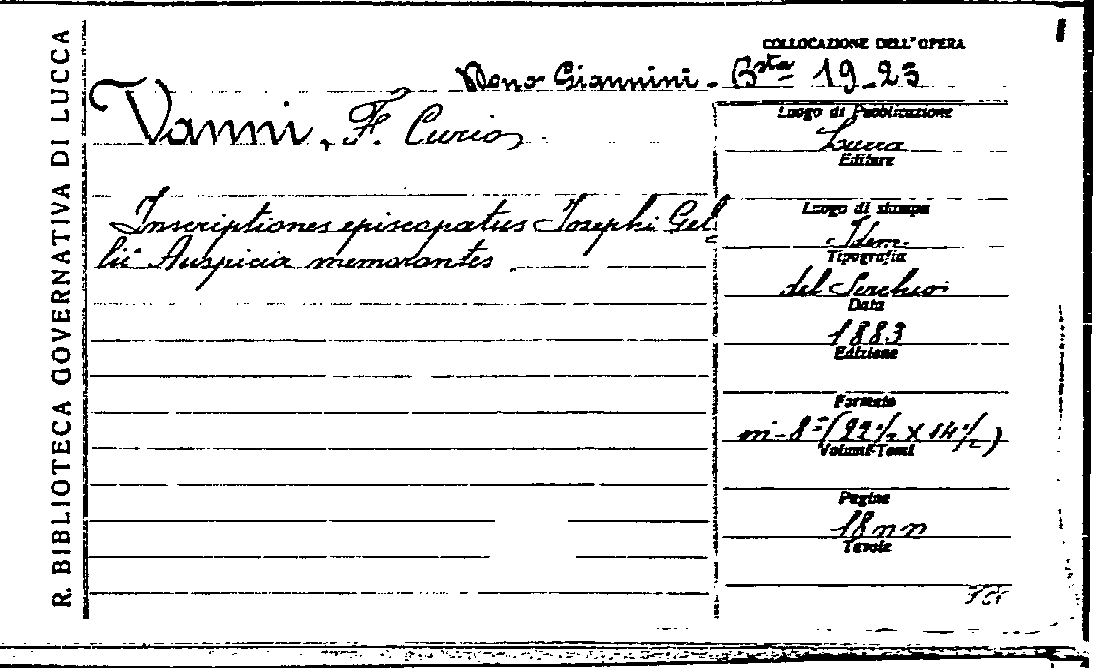 R. BIBLIOTECA GOVERNATIVA DI LUCCA
COLLOCAZIONE DELL'OPERA
Giannini - Bsta 19-23
Vanni, F. Curio
Inscriptiones episcopatus Josephi Gel
lii Auspicia memorantes
Luogo di Pubblicazione
Lucca
Editore
Luogo di stampa
Idem
Tipografia
del Serchio
Data
1883
Edizione
Formato
in-8° (22 1/2 X 14 1/2)
Volumi-Tomi
Pagine
18 nn
Tavole